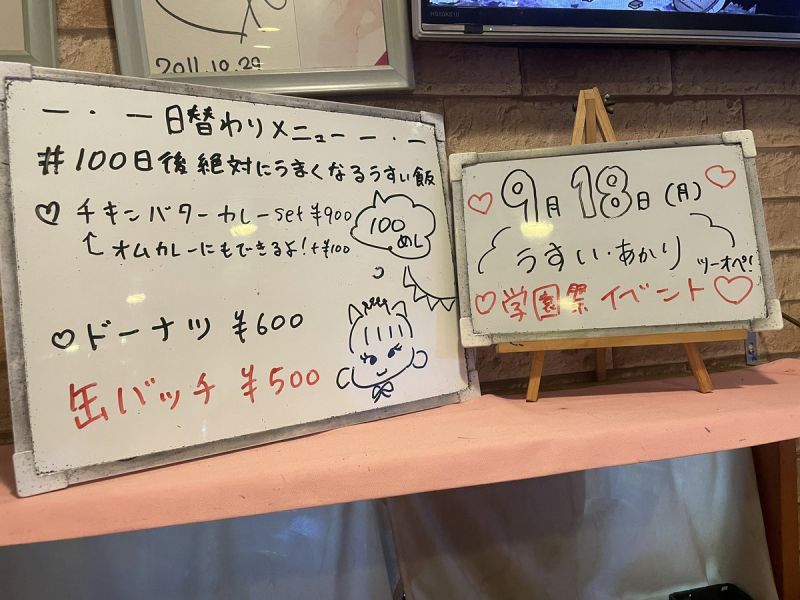 2011.10.29
一・一日替わりメニュー一・一
#100日後絶対にうまくなるうすい飯
♡ チキンバターカレーset ¥900
↳ オムカレーにもできるよ!+¥100
100めし
♡ ドーナツ ¥600
缶バッチ ¥500
9月18日(月)
うすい・あかり
ツーオペ!
♡学園祭イベント♡